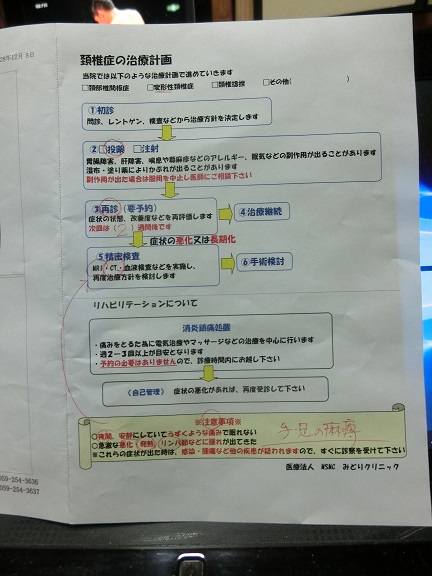 26年12月 5日
頚椎症の治療計画
当院では以下のような治療計画で進めていきます
□頚部椎間板症 □変形性頚椎症 □頚椎捻挫 □その他( )
①初診
問診、レントゲン、検査などから治療方針を決定します
②□投薬 □注射
胃腸障害、肝障害、喉息や蕁麻疹などのアレルギー、眠気などの副作用が出ることがあります
湿布・塗り薬によりかぶれが出ることがあります
副作用が出た場合は服用を中止し医師にご相談下さい
③再診（要予約）
症状の状態、改善度などを再評価します
次回は（ 2 ）週間後です
④治療継続
症状の悪化又は長期化
⑤精密検査
MRI・CT・血液検査などを実施し、
再度治療方針を検討します
⑥手術検討
リハビリテーションについて
消炎鎮痛処置
・痛みをとるために電気治療やマッサージなどの治療を中心に行います
・週2－3回以上が目安となります
・予約の必要はありませんので、診療時間内にお越し下さい
《自己管理》 症状の悪化があれば、再度受診して下さい
※注意事項※
○夜間、安静にしていてうずくような痛みで眠れない
○急激な悪化（発熱、リンパ節などに腫れが出てきた
※これらの症状が出た時は、感染・腫瘍など他の疾患が疑われますので、すぐに診察を受けて下さい
手足の麻痺
医療法人 MSMC みどりクリニック
059-254-3636
059-254-3637